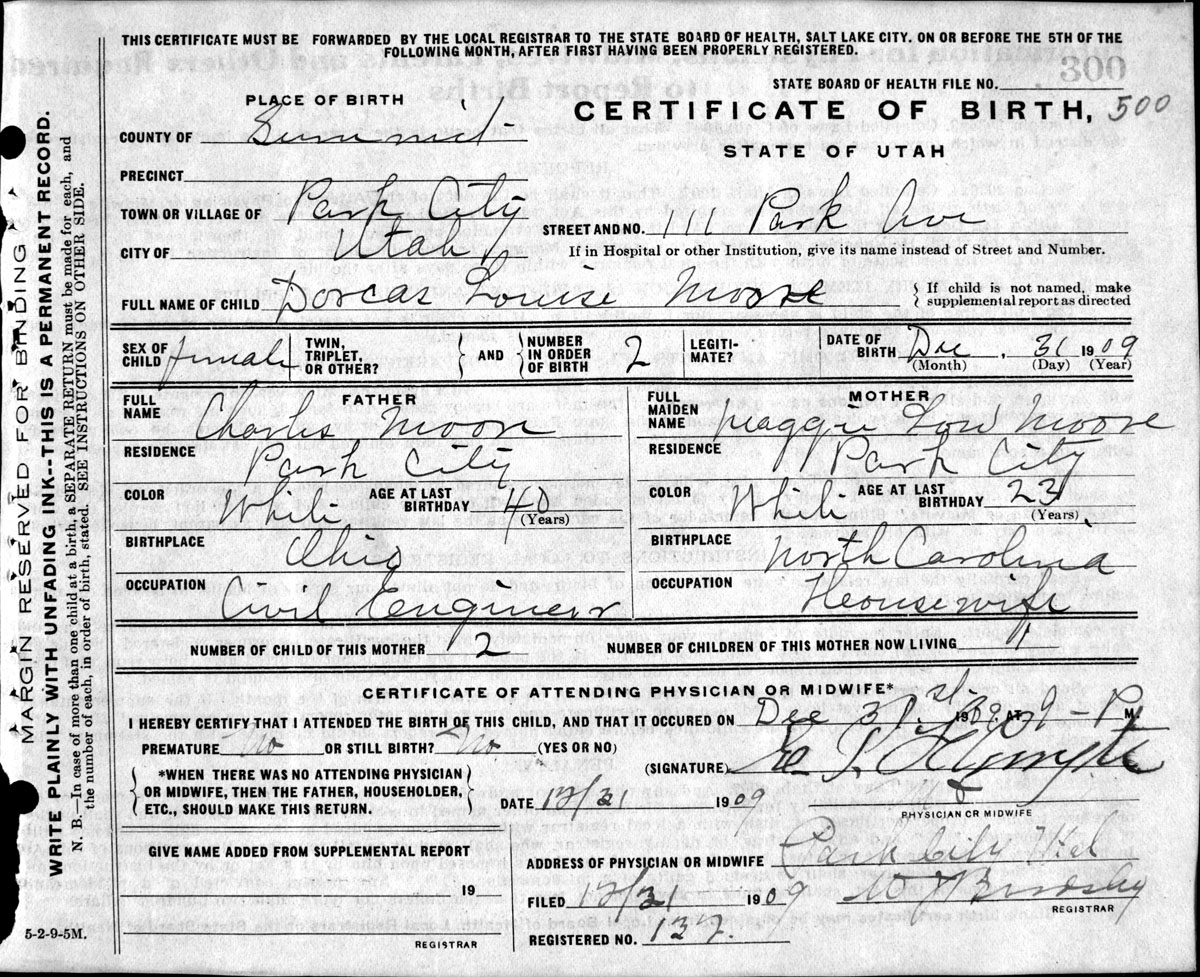 THIS CERTIFICATE MUST BE FORWARDED BY THE LOCAL REGISTRAR TO THE STATE BOARD OF HEALTH, SALT LAKE CITY. ON OR BEFORE THE 5TH OF THE
FOLLOWING MONTH, AFTER FIRST HAVING BEEN PROPERLY REGISTERED.
300
STATE BOARD OF HEALTH FILE NO.
PLACE OF BIRTH
CERTIFICATE OF BIRTH, 500
COUNTY OF Summit
STATE OF UTAH
PRECINCT
TOWN OR VILLAGE OF Park City
STREET AND NO. 111 Park Ave
CITY OF Utah
If in Hospital or other Institution, give its name instead of Street and Number.
FULL NAME OF CHILD Dorcas Louise Moore
{ If child is not named, make
supplemental report as directed
SEX OF CHILD female
TWIN, TRIPLET, OR OTHER?
} AND {
NUMBER IN ORDER OF BIRTH 2
LEGITI- MATE?
DATE OF BIRTH Dec, 31 1909
(Month) (Day) (Year)
FATHER
FULL NAME Charles Moore
RESIDENCE Park City
COLOR White AGE AT LAST BIRTHDAY 40
(Years)
BIRTHPLACE Ohio
OCCUPATION Civil Engineer
MOTHER
FULL MAIDEN NAME Maggie Low Moore
RESIDENCE Park City
COLOR White AGE AT LAST BIRTHDAY 23
(Years)
BIRTHPLACE North Carolina
OCCUPATION Housewife
NUMBER OF CHILD OF THIS MOTHER 2 NUMBER OF CHILDREN OF THIS MOTHER NOW LIVING
CERTIFICATE OF ATTENDING PHYSICIAN OR MIDWIFE*
I HEREBY CERTIFY THAT I ATTENDED THE BIRTH OF THIS CHILD, AND THAT IT OCCURED ON Dec 31st 1909, AT 9-P M.
PREMATURE No OR STILL BIRTH? No (YES OR NO)
(SIGNATURE)
{ *WHEN THERE WAS NO ATTENDING PHYSICIAN
OR MIDWIFE, THEN THE FATHER, HOUSEHOLDER,
ETC., SHOULD MAKE THIS RETURN. }
DATE 12/31 1909
PHYSICIAN OR MIDWIFE
GIVE NAME ADDED FROM SUPPLEMENTAL REPORT
19
REGISTRAR
ADDRESS OF PHYSICIAN OR MIDWIFE Park City Utah
FILED 12/31 1909
REGISTRAR
REGISTERED NO. 137.
5-2-9-5M.
MARGIN RESERVED FOR BINDING
WRITE PLAINLY WITH UNFADING INK--THIS IS A PERMANENT RECORD.
N. B.--In case of more than one child at a birth, a SEPARATE RETURN must be made for each, and
the number of each, in order of birth, stated. SEE INSTRUCTIONS ON OTHER SIDE.